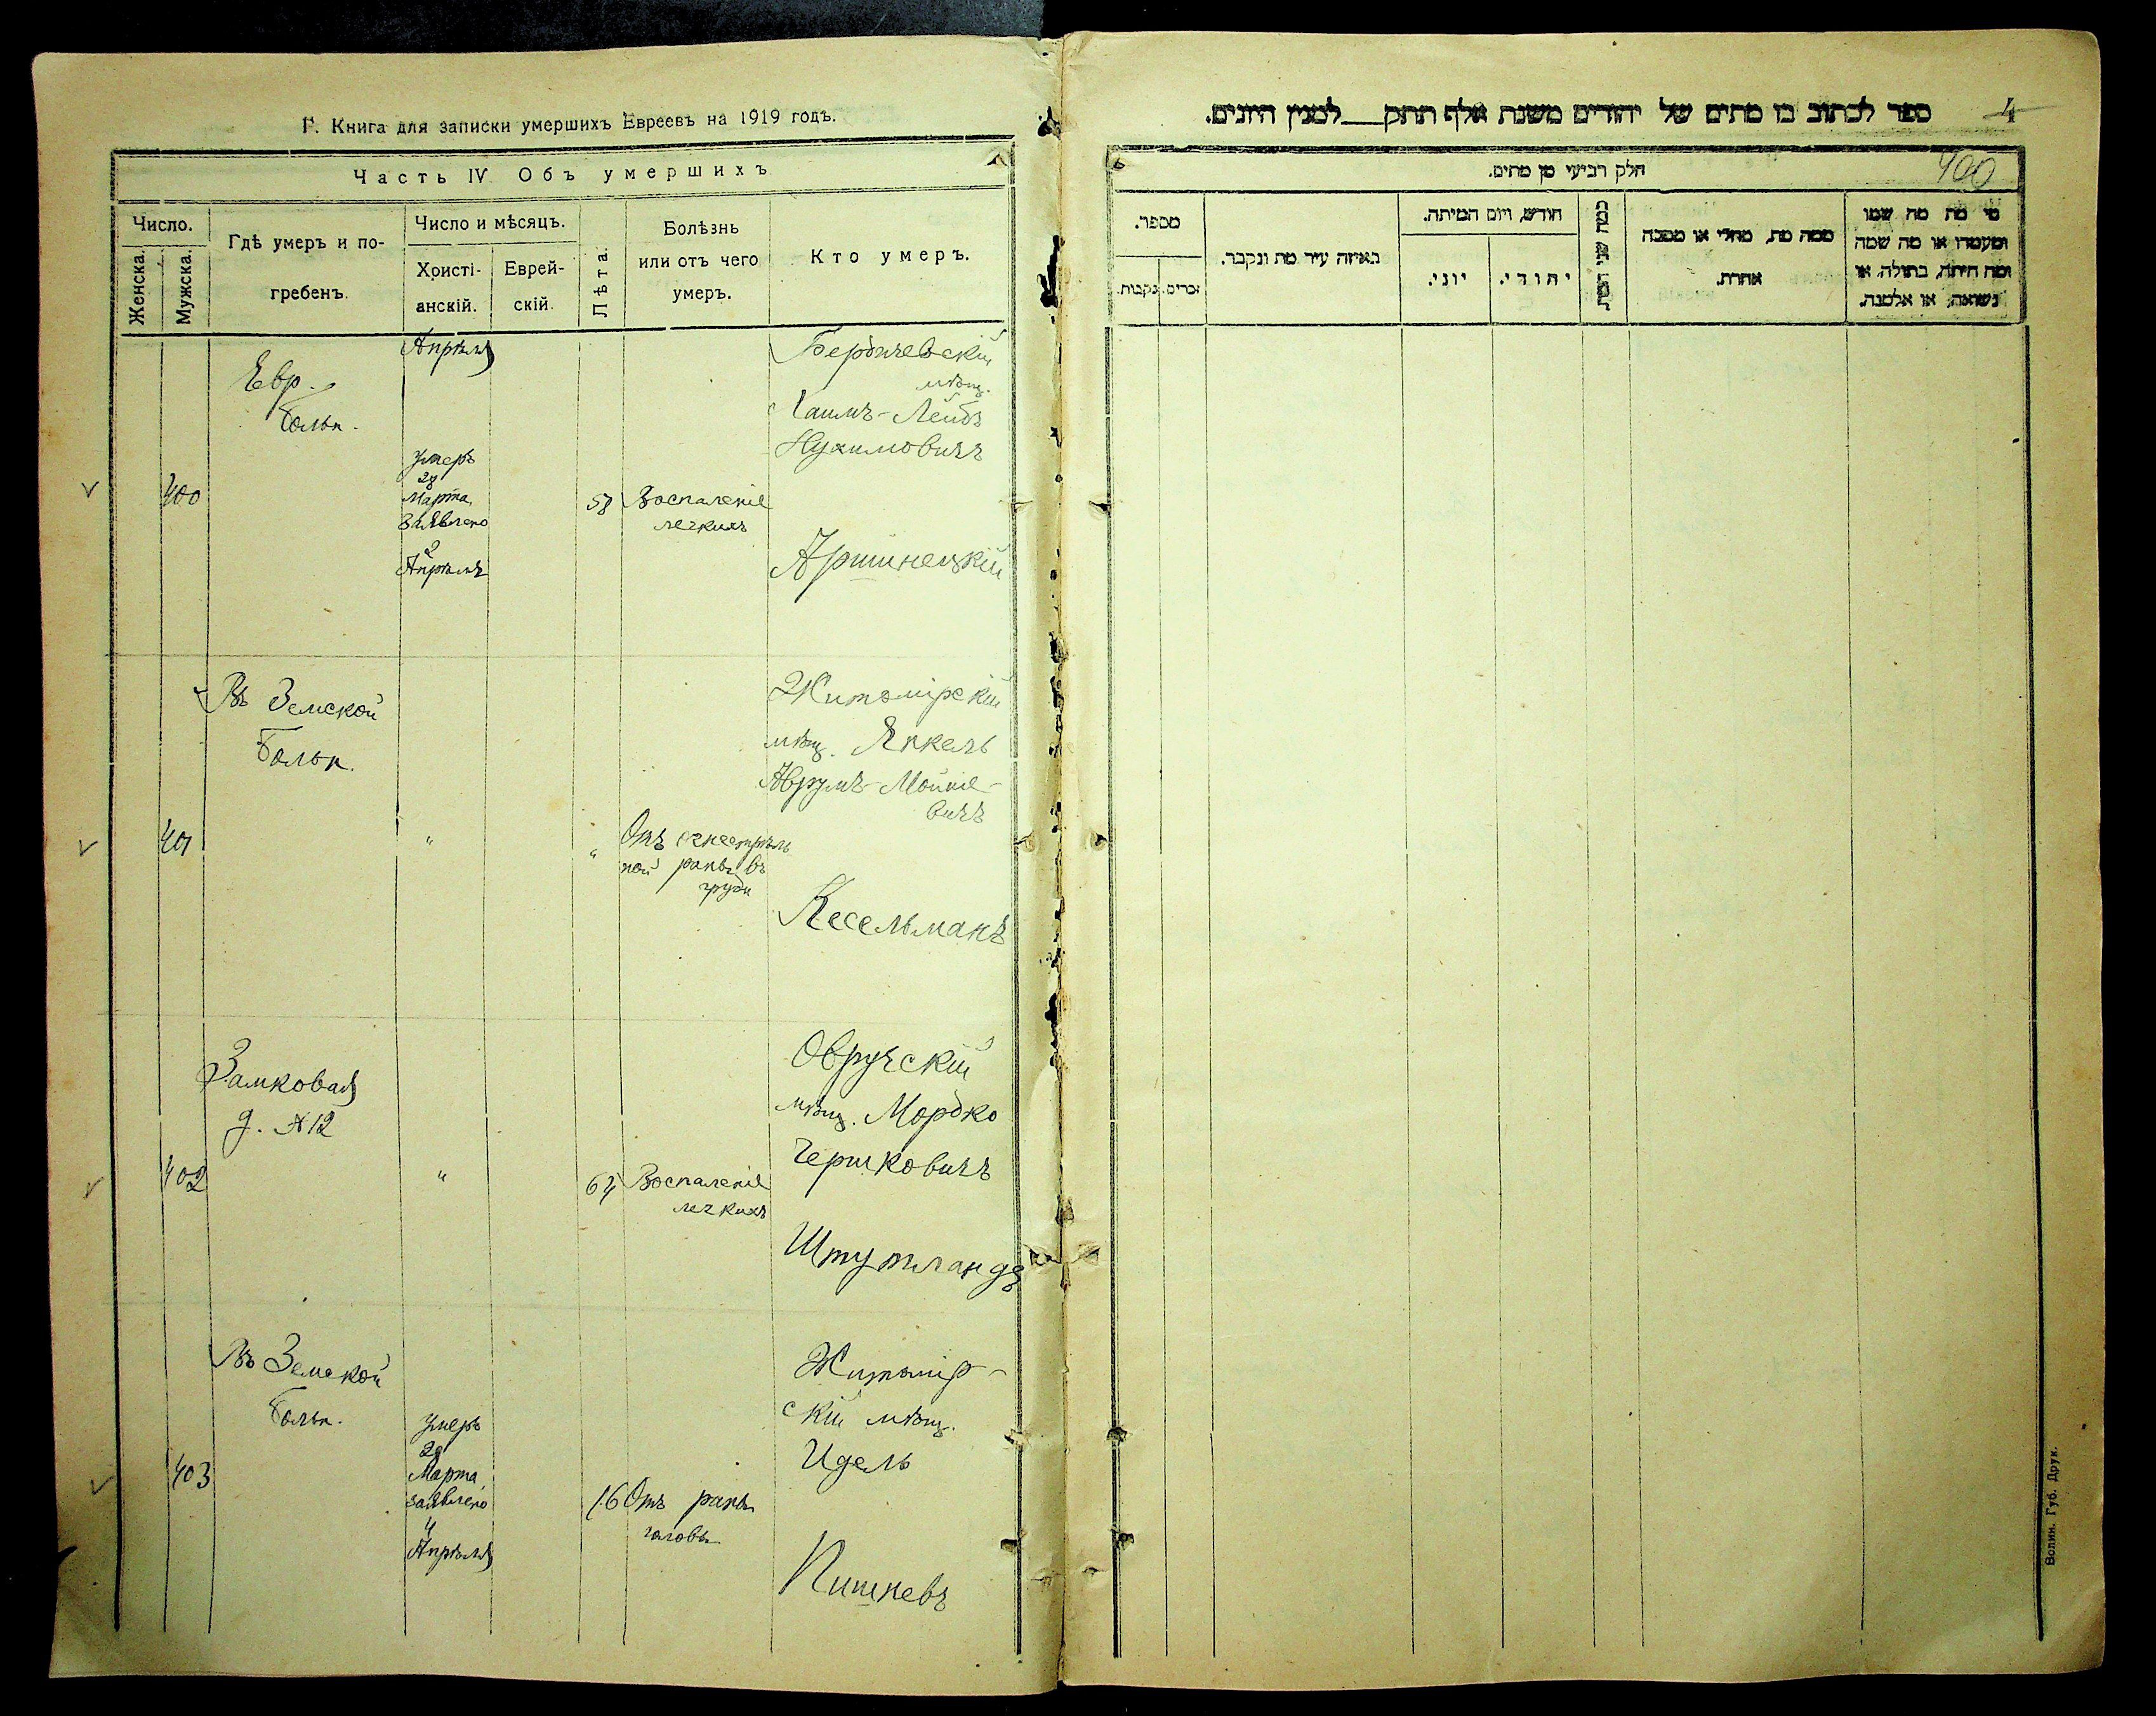 Г. Книга для записки умершихъ Евреевъ на 1919 годъ.
Часть IV Объ умершихъ
Число.
Женска.
Мужска.
Гдѣ умеръ и по-
гребенъ.
Число и мѣсяцъ.
Христі-
анскій.
Еврей-
скій.
Лѣта.
Болѣзнь
или отъ чего
умеръ.
Кто умеръ.
Апрѣля
Евр.
больн.
400
Умеръ
28
Марта
Заявлено
Апрѣля
58
Воспаленіе
легкихъ
Бердичевскій
мѣщ.
Хаимъ-Лейбъ
Нухимовичъ
Аршинецкій
Въ Земской
больн.
401
"
"
Отъ огнестрѣль
ной раны въ
груди
Житомірскій
мѣщ. Янкель
Аврумъ-Мойше-
вичъ
Кесельманъ
Замковая
д. № 12
402
"
64
Воспаленіе
легкихъ
Овручскій
мѣщ. Мордко
Гершковичъ
Въ Земской
больн.
403
Умеръ
28
Марта
заявлено
4
Апрѣля
16
Отъ раны
головы
Житомір-
скій мѣщ.
Идель
ספר לכתוב בו מתים של יהודים משנת אלף תתק___למנין היונים.
4
400
חלק רביעי מן מתים.
מספר.
זכרים.
נקבות.
באיזה עיר מת ונקבר.
חודש, ויום המיתה.
יוני.
יהודי.
ממה מת, מחלי או מסבה
אחרת.
מי מת מה שמו
ומעמדו או מה שמה
ומה היתה, בתולה, או
נשואה, או אלמנה.
Волин. Губ. Друк.